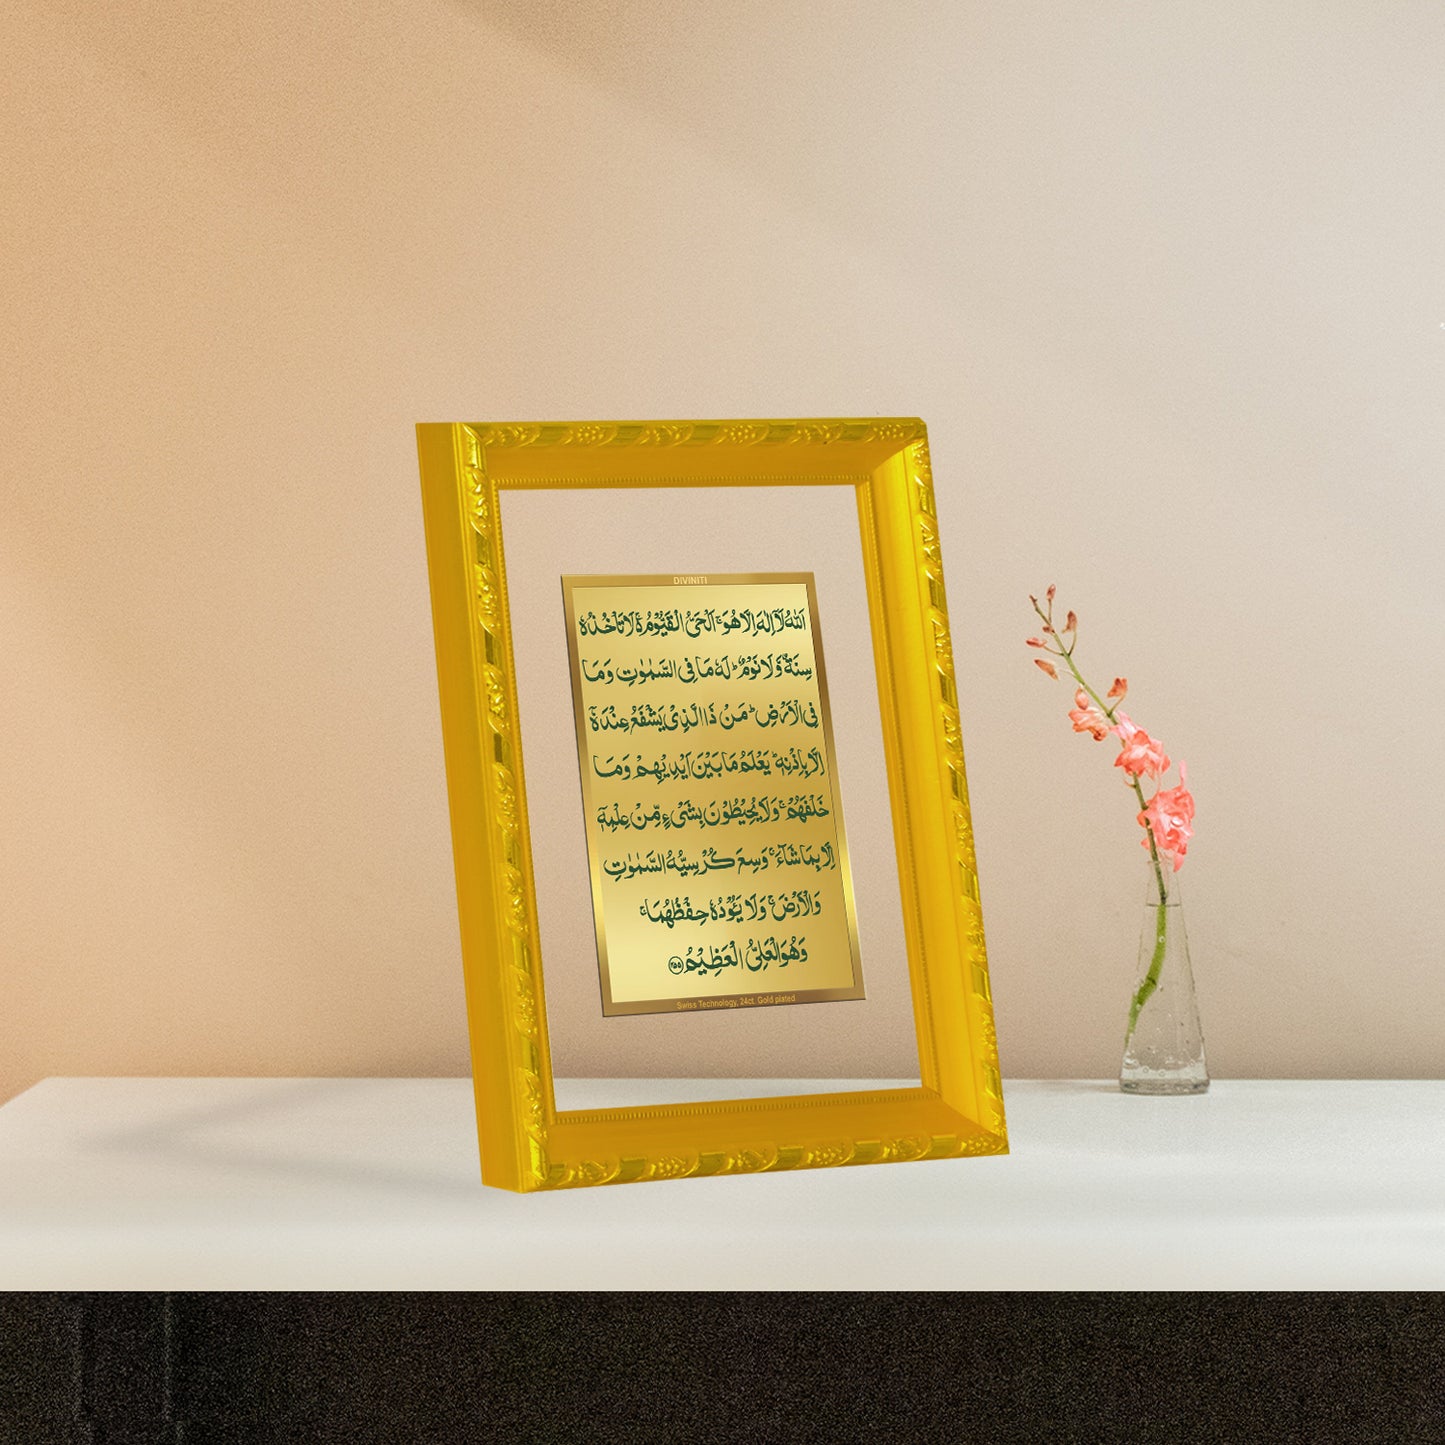 DIVINITI
اَللّٰهُ لَاۤ اِلٰهَ اِلَّا هُوَ ۚ اَلْحَیُّ الْقَیُّوْمُ ۚ۬ لَا تَاْخُذُهٗ
سِنَةٌ وَّلَا نَوْمٌ ؕ لَهٗ مَا فِی السَّمٰوٰتِ وَمَا
فِی الْاَرْضِ ؕ مَنْ ذَا الَّذِیْ یَشْفَعُ عِنْدَهٗۤ
اِلَّا بِاِذْنِهٖ ؕ یَعْلَمُ مَا بَیْنَ اَیْدِیْهِمْ وَمَا
خَلْفَهُمْ ۚ وَلَا یُحِیْطُوْنَ بِشَیْءٍ مِّنْ عِلْمِهٖۤ
اِلَّا بِمَا شَآءَ ۚ وَسِعَ كُرْسِیُّهُ السَّمٰوٰتِ
وَالْاَرْضَ ۚ وَلَا یَـُٔوْدُهٗ حِفْظُهُمَا ۚ
وَهُوَ الْعَلِیُّ الْعَظِیْمُ ﴿۲۵۵﴾
Swiss Technology, 24ct. Gold plated